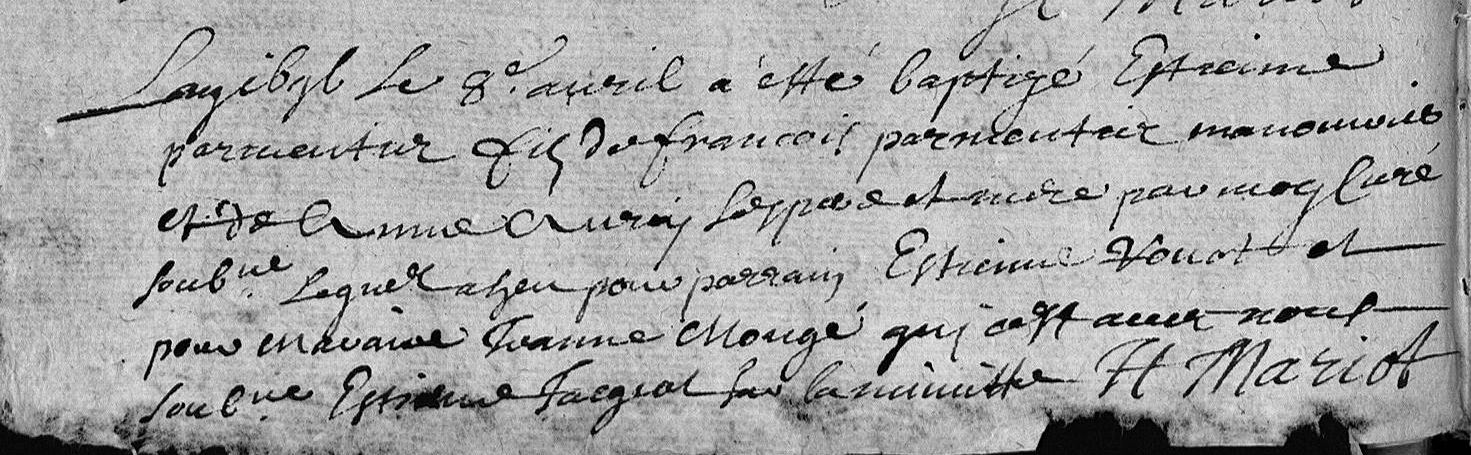 le 8e. avril a esté baptizé Estienne
parmentier fils de francois parmentier manouvrier
et de Anne ses pere et mere par moy Curé
soubne lequel a heu pour parrain Estienne et
pour maraine Jeanne Mongé qui c'est avec nous
soubne Estienne Jacquot sur la minutte H Mariot